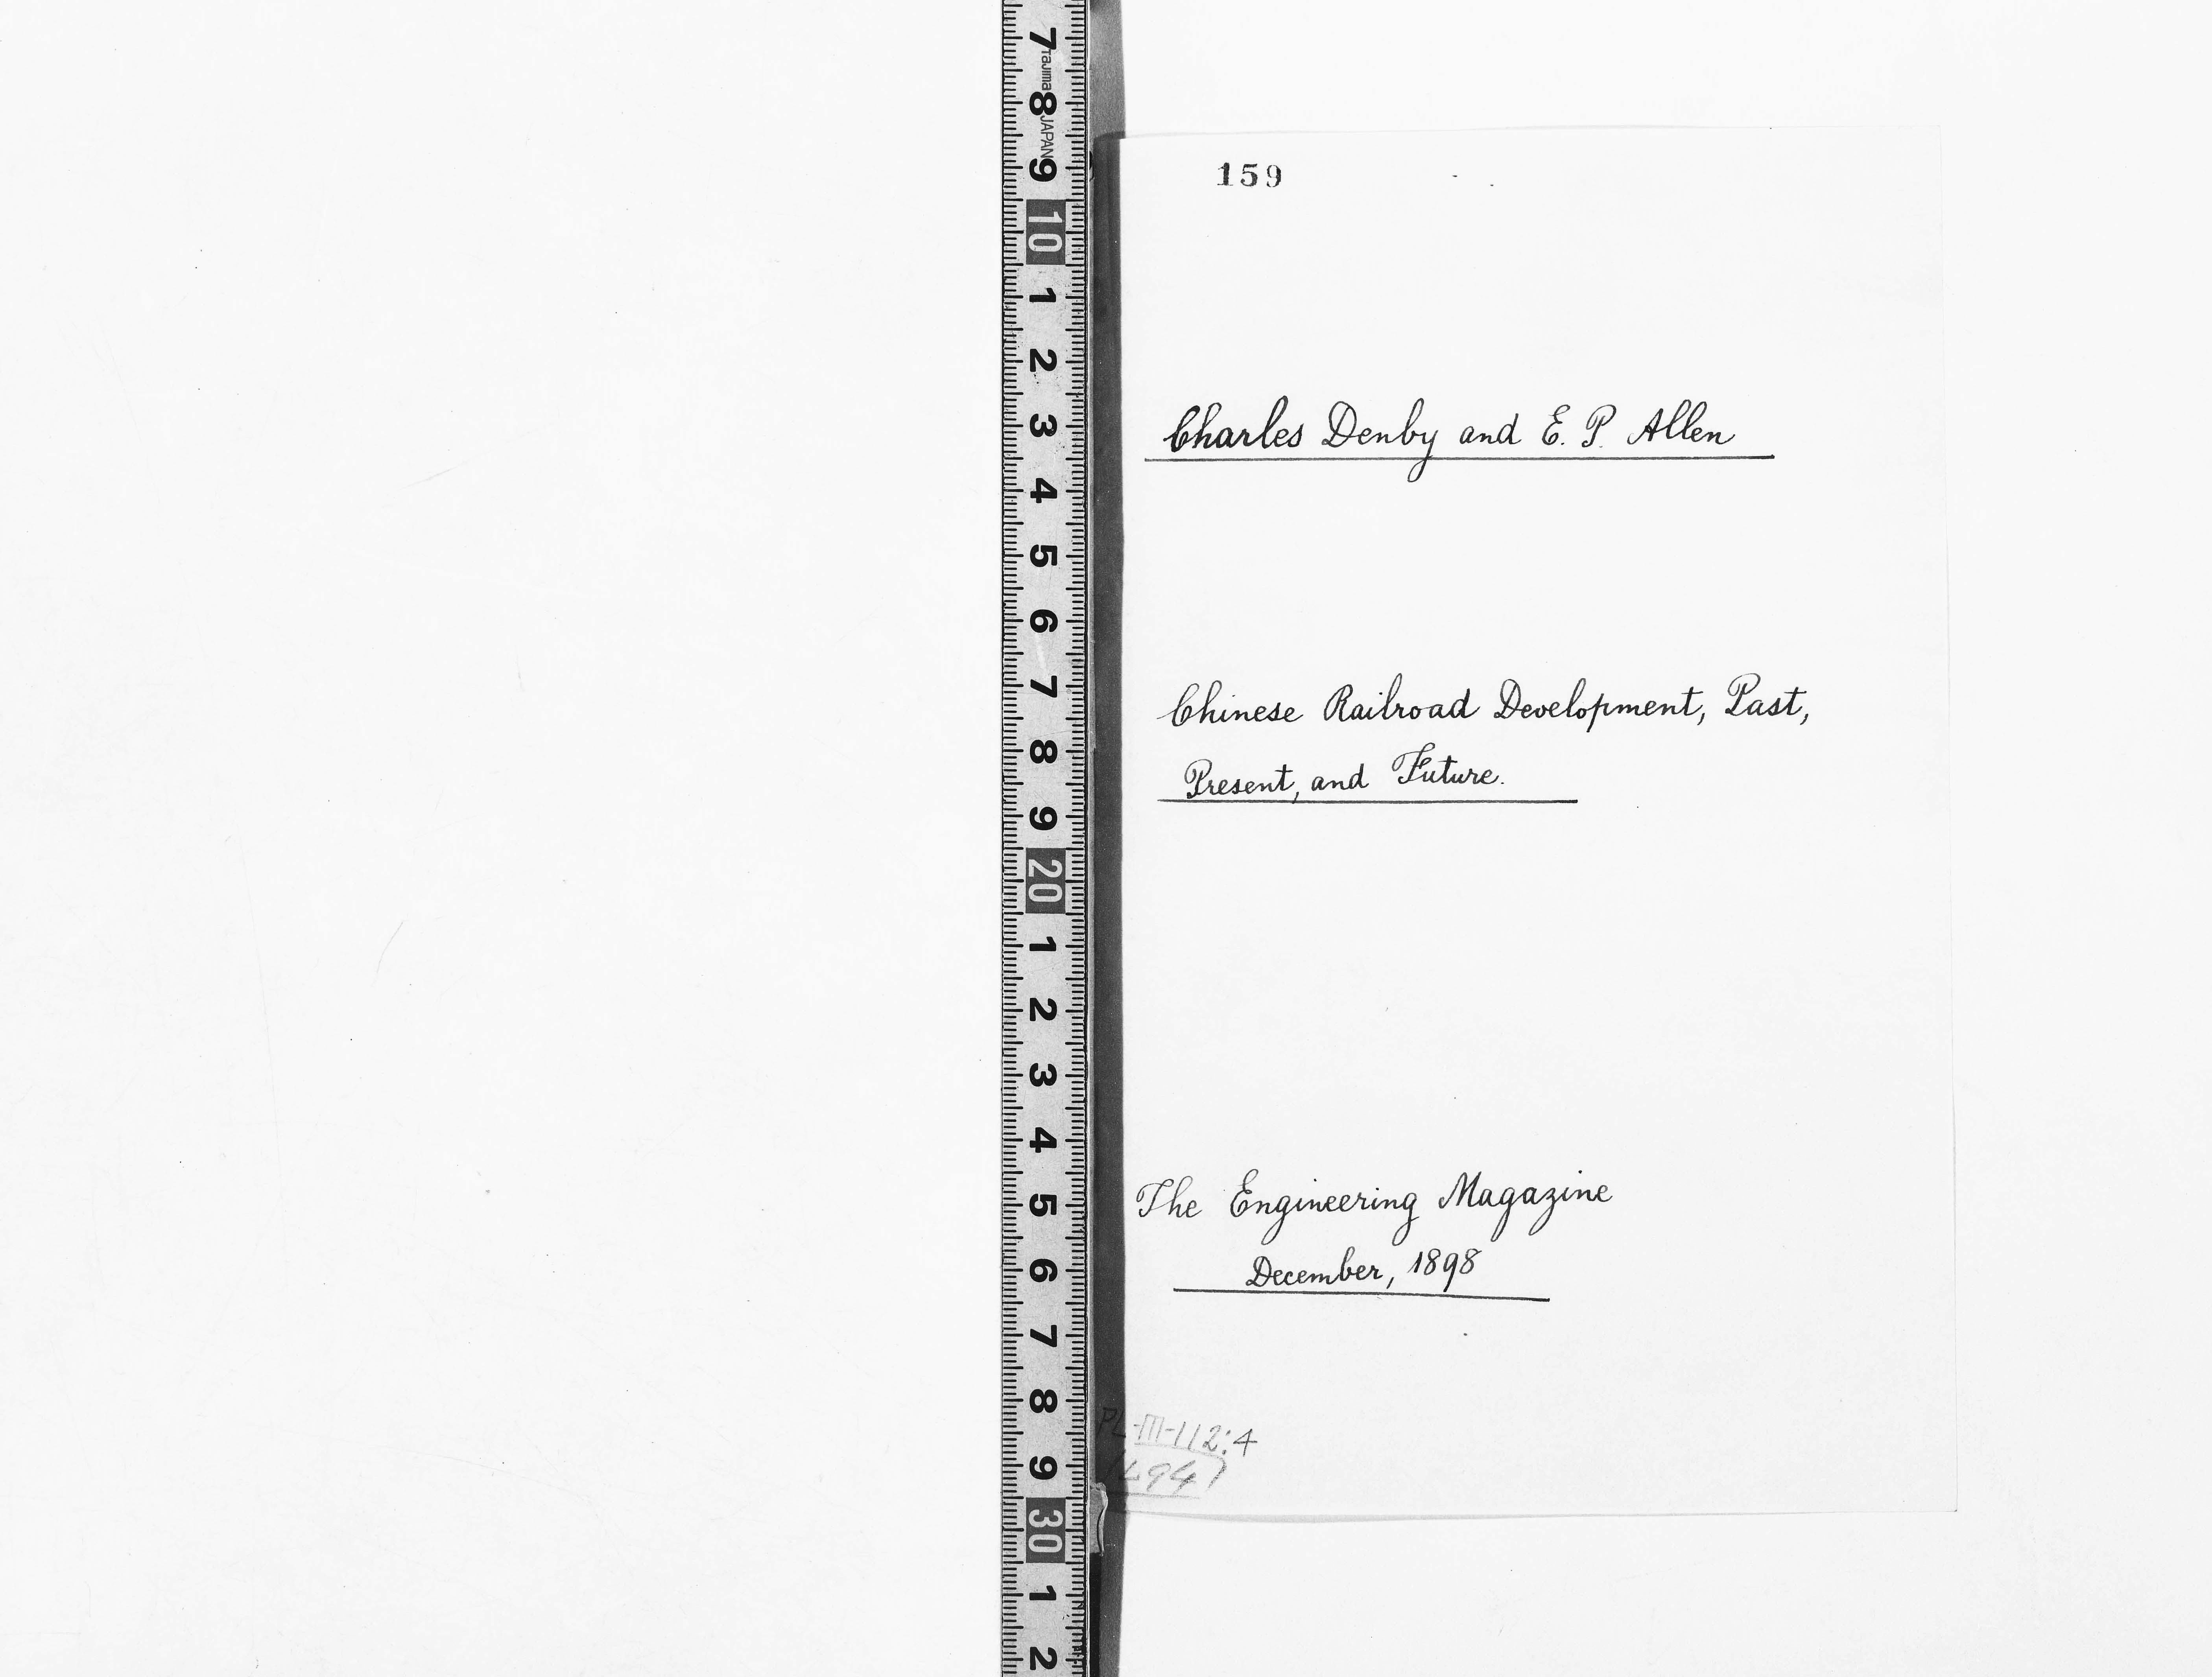 7
Tajima
8
JAPAN
9
10
1
2
3
4
5
6
7
8
9
20
1
2
3
4
5
6
7
8
9
30
1
2
159
Charles Denby and E. P. Allen
Chinese Railroad Development, Past,
Present, and Future.
The Engineering Magazine
December, 1898
PL-III-112:4
(L94)